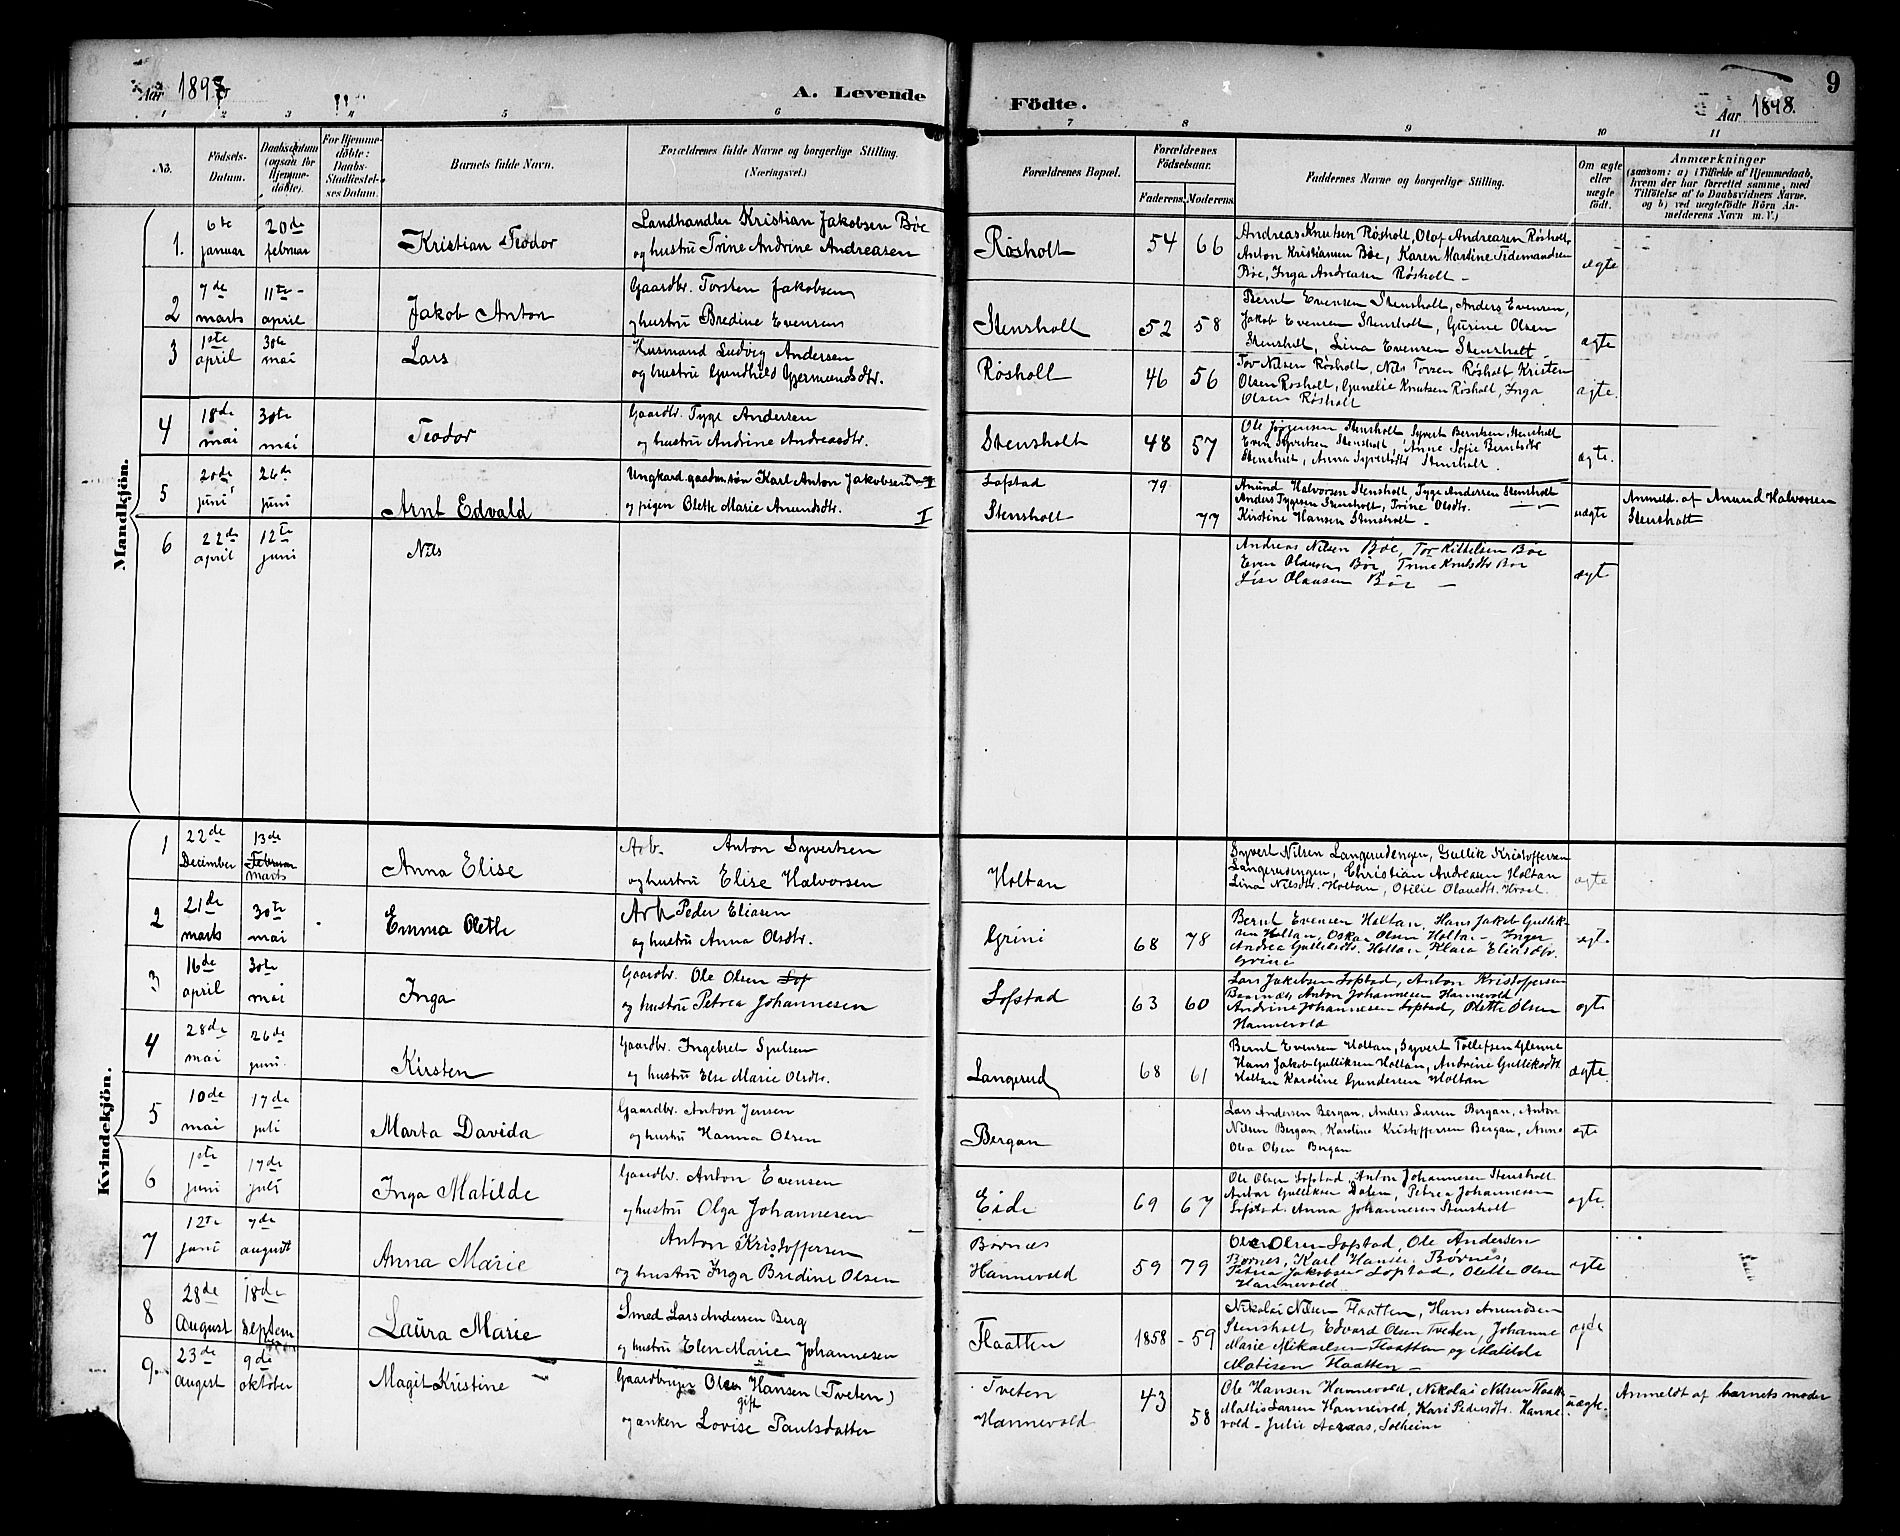 Aar 1898
A. Levende
Födte.
Aar 1898.
9
1 2 3 4 5 6 7 8 9 10 11
No.
Födsels-Datum.
Daabsdatum (ogsaa for Hjemme-döbte).
For Hjemme-döbte: Daabs-Stadfæstel-ses Datum.
Barnets fulde Navn.
Forældrenes fulde Navne og borgerlige Stilling. (Næringsvei.)
Forældrenes Bopæl.
Forældrenes Födselsaar.
Faderens. Moderens.
Faddernes Navne og borgerlige Stilling.
Om ægte eller uægte födt.
Anmærkninger
(saasom: a) i Tilfælde af Hjemmedaab,
hvem der har forrettet samme, med
Tilföielse af to Daabsvidners Navne.
og b) ved uægtefödte Börn An-
melderens Navn m. V.)
Mandkjön.
1. 6te januar 20de februar Kristian Teodor
Landhandler Kristian Jakobsen Böe
og hustru Trine Andrine Andreasen
Røsholt 54 66
Andreas Knutsen Røsholt, Olaf Andreasen Røsholt,
Anton Kristiansen Bøe, Karen Martine Tidemandsen
Bøe, Inga Andreasen Røsholt –
ægte
2 7de marts 11te april Jakob Anton
Gaardbr. Torsten Jakobsen
og hustru Bredine Evensen
Stensholt 52 58
Bernt Evensen Stensholt, Anders Evensen,
Jakob Evensen Stensholt, Gurine Olsen
Stensholt, Lina Evensen Stensholt –
ægte
3 1ste april 30te mai Lars
Husmand Ludvig Andersen
og hustru Gundhild Gjermundsdtr.
Røsholt 46 56
Tov Nilsen Røsholt, Nils Tovsen Røsholt Kristen
Olsen Røsholt, Gunelie Knutsen Røsholt, Inga
Olsen Røsholt
ægte.
4 18de mai 30te mai Teodor
Gaardbr. Tyge Andersen
og hustru Andrine Andreasdtr.
Stensholt 48 57
Ole Jørgensen Stensholt Syvert Berntsen Stensholt
Even Syvertsen Stensholt, Anne Sofie Berntsdtr
Stensholt, Anna Syvertsdtr Stensholt.
ægte.
5 20de juni 26de juni Arnt Edvald
Ungkard gaardm.søn Karl Anton Jakobsen I
og pigen Olette Marie Amundsdtr. I
Lofstad 79
Stensholt 77
Amund Halvorsen Stensholt, Tyge Andersen Stensholt
Anders Tygesen Stensholt, Trine Olsdtr.
Kirstine Hansen Stensholt –
uægte
Anmeld. af Amund Halvorsen
Stensholt
6 22de april 12te juni Nils
Andreas Nilsen Bøe, Tor Kittelsen Bøe
Even Olausen Bøe, Trine Knutsdtr Bøe
Lise Olausen Bøe –
ægte
Kvindekjön.
1 22de December 13de Februar marts Anna Elise
Arb. Anton Syvertsen
og hustru Elise Halvorsen
Holtan
Syvert Nilsen Langerudengen, Gullik Kristoffersen
Langerudengen, Christian Andreasen Holtan
Lina Nilsdtr. Holtan, Otilie Olausdtr.
ægte
2 21de marts 30te mai Emma Olette
Arb Peder Eliasen
og hustru Anna Olsdtr.
Grini 68 78
Bernt Evensen Holtan, Hans Jakob Gullik-
sen Holtan, Oskar Olsen Holtan – Inger
Andrea Gulliksdtr. Holtan, Klara Eliasdtr.
Grini
ægt.
3 16de april 30te mai Inga
Gaardbr. Ole Olsen Lof
og hustru Petrea Johannesen
Lofstad 63 60
Lars Jakobsen Lofstad, Anton Kristoffersen
Bøvnæs, Anton Johannesen Hannevold
Andrine Johannesen Lofstad, Olette Olsen
Hannevold
ægte
4 28de mai 26de juni. Kirsten
Gaardbr. Ingebret
og hustru Else Marie Olsdtr.
Langerud 68 61
Bernt Evensen Holtan, Syvert Tollefsen Glenne
Hans Jakob Gulliksen Holtan, Andrine Gulliksdtr
Holtan Karoline Gundersen Holtan
ægte.
5 10de mai 17de juli Marta Davida
Gaardbr. Anton Jensen
og hustru Hanna Olsen
Bergan
Lars Andersen Bergan, Anders Larsen Bergan, Anton
Nilsen Bergan, Karoline Kristoffersen Bergan, Anne
Olea Olsen Bergan
ægte
6 1ste juni 17de juli Inga Matilde
Gaardbr. Anton Evensen
og hustru Olga Johannesen
Eide 69 67
Ole Olsen Lofstad, Anton Johannesen Stensholt
Anton Gulliksen Dalen, Petrea Johannesen
Lofstad. Anna Johannesen Stensholt
ægte.
7 12te juni 7de august Anna Marie
Anton Kristoffersen
og hustru Inga Bredine Olsen
Børnæs
Hannevold 59 79
Ole Olsen Lofstad, Ole Andersen
Børnes, Karl Hansen Børnes,
Petrea Jakobsen Lofstad, Olette Olsen
Hannevold
ægte
8 28de August 18de Septem Laura Marie
Smed Lars Andersen Berg
og hustru Elen Marie Johannesen
Flaatten 1858 – 59
Nikolai Nilsen Flaatten, Hans Amundsen
Stensholt, Edvard Olsen Tveten, Johanne
Marie Mikaelsen Flaatten og Matilde
Matisen Flaatten –
9. 23de August 9de oktober Magit Kristine
Gaardbruger Ole Hansen (Tveten)
gift
og enken Lovise Paulsdatter
Tveten 43
Hannevold 58
Ole Hansen Hannevold, Nikolai Nilsen Flaatt
Mattis Larsen Hannevold, Kari Pedersdtr. Hanne
vold – Julie Aaraas, Solheim
uægte.
Anmeldt af barnets moder